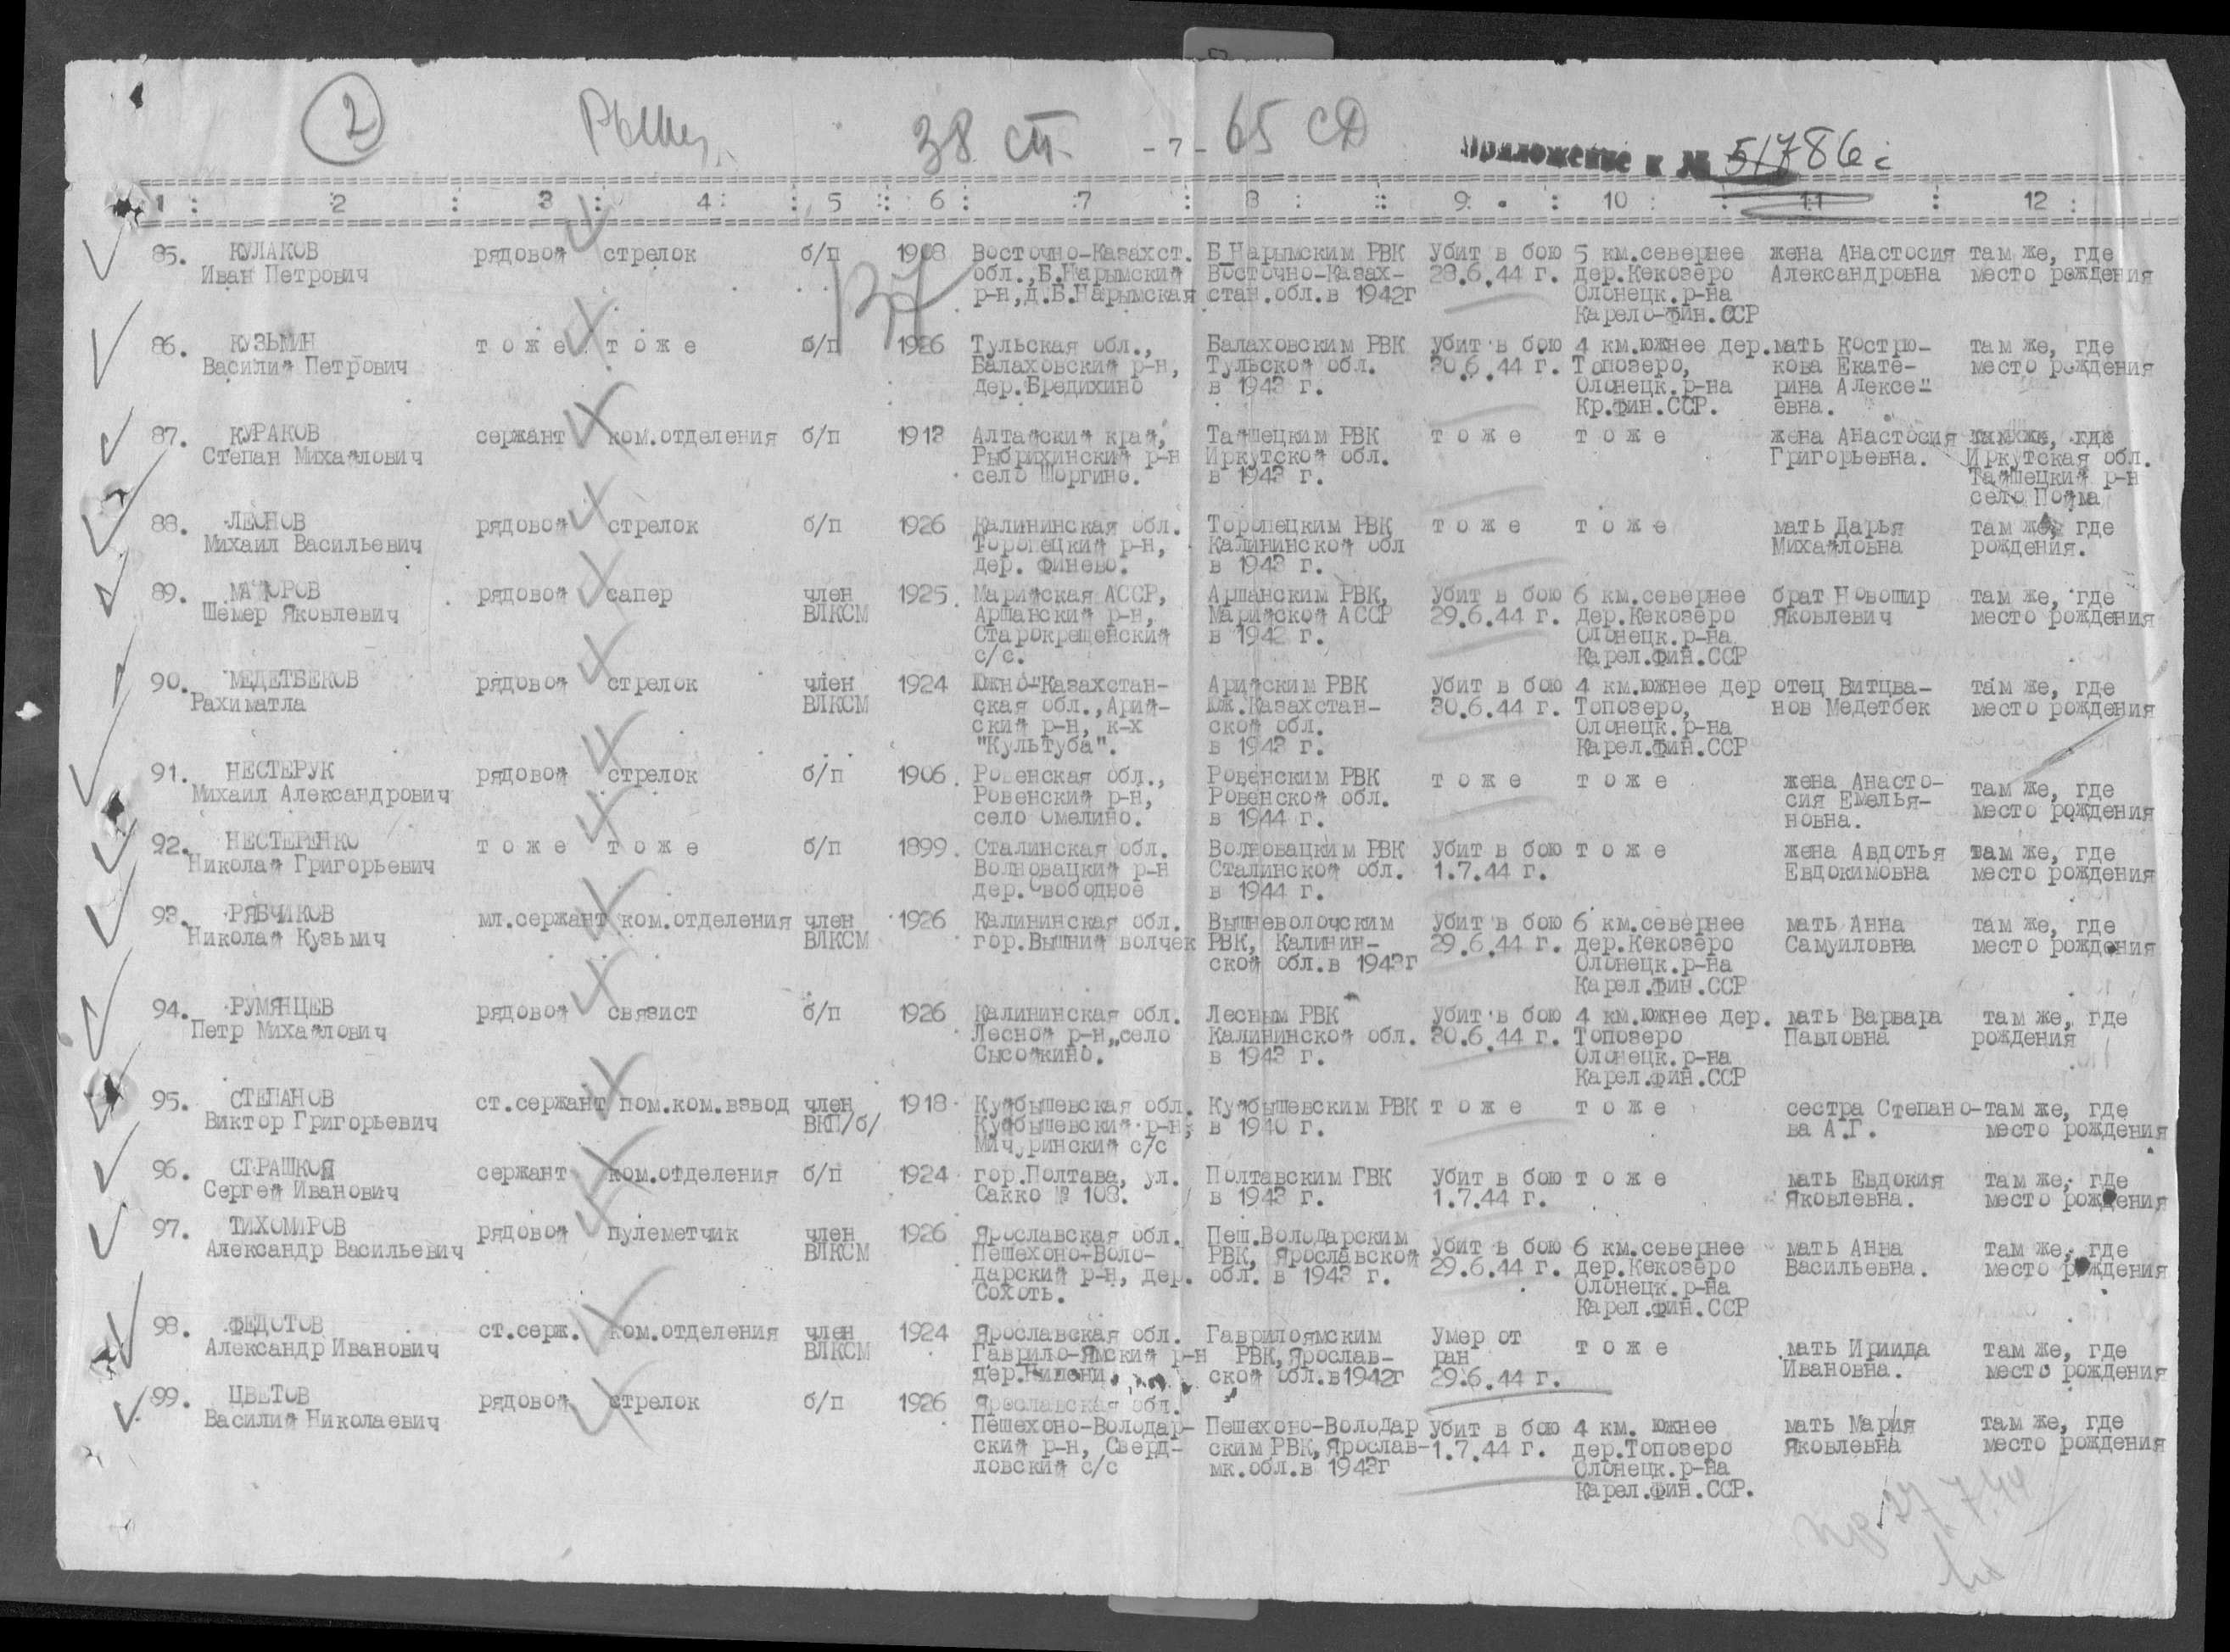 2 38 сп - 7 - 65 СД Приложение к № 51786с
1 : 2 : 3 : 4 : 5 : 6 : 7 : 8 : 9 : 10 : 11 : 12 :
85. КУЛАКОВ рядовой стрелок б/п 1908 Восточно-Казахст. Б.Нарымским РВК Убит в бою 5 км.севернее жена Анастосия там же, где
Иван Петрович обл.,Б.Нарымский Восточно-Казах- 28.6.44 г. дер.Кекозеро Александровна место рождения
р-н,д.Б.Нарымская стан.обл.в 1942г Олонецк.р-на
Карело-Фин.ССР
86. КУЗЬМИН т о ж е т о ж е б/п 1926 Тульская обл., Балаховским РВК Убит в бою 4 км.южнее дер. мать Костро- там же, где
Василий Петрович Балаховский р-н, Тульской обл. 30.6.44 г. Топозеро, кова Екате- место рождения
дер.Бредихино в 1943 г. Олонецк.р-на рина Алексе-
Кр.Фин.ССР. евна.
87. КУРАКОВ сержант ком.отделения б/п 1913 Алтайский край, Тайшецким РВК т о ж е т о ж е жена Анастосия там же, где
Степан Михайлович Рыбрихинский р-н Иркутской обл. Григорьевна. Иркутская обл.
село Шоргино. в 1943 г. Тайшецкий р-н
село Пойма
88. ЛЕОНОВ рядовой стрелок б/п 1926 Калининская обл. Торопецким РВК т о ж е т о ж е мать Дарья там же, где
Михаил Васильевич Торопецкий р-н, Калининской обл Михайловна рождения.
дер. Финево. в 1943 г.
89. МАЙОРОВ рядовой сапер член 1925 Марийская АССР, Аршанским РВК, Убит в бою 6 км.севернее брат Новошир там же, где
Шемер Яковлевич ВЛКСМ Аршанский р-н, Марийской АССР 29.6.44 г. дер.Кекозеро Яковлевич место рождения
Старокрещенский в 1942 г. Олонецк.р-на
с/с. Карел.Фин.ССР
90. МЕДЕТБЕКОВ рядовой стрелок член 1924 Южно-Казахстан- Арийским РВК Убит в бою 4 км.южнее дер отец Витцва- там же, где
Рахиматла ВЛКСМ ская обл.,Арий- Юж.Казахстан- 30.6.44 г. Топозеро, нов Медетбек место рождения
ский р-н, к-х ской обл. Олонецк.р-на
"Культуба". в 1943 г. Карел.Фин.ССР
91. НЕСТЕРУК рядовой стрелок б/п 1906 Ровенская обл., Ровенским РВК т о ж е т о ж е жена Анасто- там же, где
Михаил Александрович Ровенский р-н, Ровенской обл. сия Емелья- место рождения
село Омелино. в 1944 г. новна.
92. НЕСТЕРЕНКО т о ж е т о ж е б/п 1899 Сталинская обл. Волновацким РВК Убит в бою т о ж е жена Авдотья там же, где
Николай Григорьевич Волновацкий р-н Сталинской обл. 1.7.44 г. Евдокимовна место рождения
дер.Свободное в 1944 г.
93. РЯБЧИКОВ мл.сержант ком.отделения член 1926 Калининская обл. Вышневолочским Убит в бою 6 км.севернее мать Анна там же, где
Николай Кузьмич ВЛКСМ гор.Вышний волчек РВК, Калинин- 29.6.44 г. дер.Кекозеро Самуиловна место рождения
ской обл.в 1943г Олонецк.р-на
Карел.Фин.ССР
94. РУМЯНЦЕВ рядовой связист б/п 1926 Калининская обл. Лесным РВК Убит в бою 4 км.южнее дер. мать Варвара там же, где
Петр Михайлович Лесной р-н,,село Калининской обл. 30.6.44 г. Топозеро Павловна рождения
Сысойкино. в 1943 г. Олонецк.р-на
Карел.Фин.ССР
95. СТЕПАНОВ ст.сержант пом.ком.взвод член 1918 Куйбышевская обл. Куйбышевским РВК т о ж е т о ж е сестра Степано- там же, где
Виктор Григорьевич ВКП/б/ Куйбышевский р-н, в 1940 г. ва А.Г. место рождения
Мичуринский с/с
96. СТРАШКОЯ сержант ком.отделения б/п 1924 гор.Полтава, ул. Полтавским ГВК Убит в бою т о ж е мать Евдокия там же, где
Сергей Иванович Сакко № 108. в 1943 г. 1.7.44 г. Яковлевна. место рождения
97. ТИХОМИРОВ рядовой пулеметчик член 1926 Ярославская обл. Пеш.Володарским Убит в бою 6 км.севернее мать Анна там же, где
Александр Васильевич ВЛКСМ Пешехоно-Воло- РВК, Ярославской 29.6.44 г. дер.Кекозеро Васильевна. место рождения
дарский р-н, дер. обл. в 1943 г. Олонецк.р-на
Сохоть. Карел.Фин.ССР
98. ФЕДОТОВ ст.серж. ком.отделения член 1924 Ярославская обл. Гаврилоямским Умер от т о ж е мать Ириида там же, где
Александр Иванович ВЛКСМ Гаврило-Ямский р-н РВК,Ярослав- ран Ивановна. место рождения
дер. ской обл.в1942г 29.6.44 г.
99. ЦВЕТОВ рядовой стрелок б/п 1926 Ярославская обл.
Василий Николаевич Пешехоно-Володар- Пешехоно-Володар Убит в бою 4 км. южнее мать Мария там же, где
ский р-н, Сверд- ским РВК,Ярослав- 1.7.44 г. дер.Топозеро Яковлевна место рождения
ловский с/с мк.обл.в 1943г Олонецк.р-на
Карел.Фин.ССР.
27.7.44